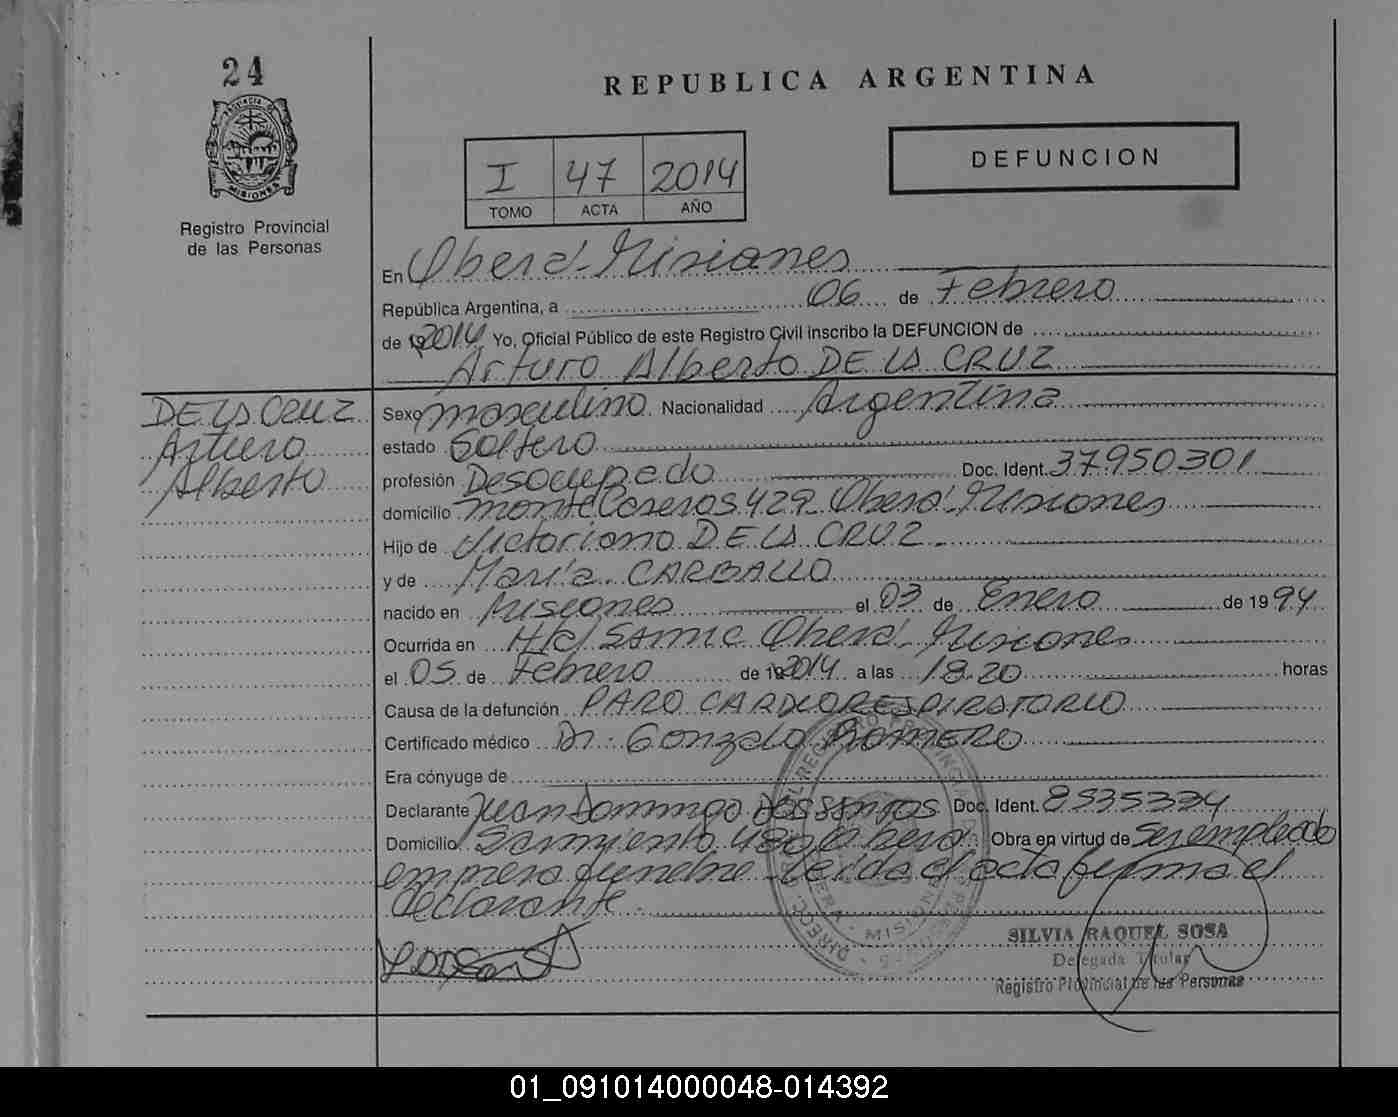 24
REPUBLICA ARGENTINA
MISIONES
Registro Provincial
de las Personas
I 47 2014
TOMO ACTA AÑO
DEFUNCION
En Oberá - Misiones
República Argentina, a 06 de Febrero
de 2014 Yo, Oficial Público de este Registro Civil inscribo la DEFUNCION de
Arturo Alberto DE LA CRUZ
DE LA CRUZ
Arturo
Alberto
Sexo masculino Nacionalidad Argentina
estado Soltero
profesión Desocupado Doc. Ident. 37950301
domicilio Monte Caseros 429 Oberá - Misiones
Hijo de Victoriano DE LA CRUZ
y de María CARBALLO
nacido en Misiones el 03 de Enero de 1994
Ocurrida en H/c/ SAMIC Oberá - Misiones
el 05 de Febrero de 2014 a las 18.20 horas
Causa de la defunción PARO CARDIORESPIRATORIO
Certificado médico Dr. Gonzalo ROMERO
Era cónyuge de
Declarante Juan Domingo DOS SANTOS Doc. Ident. 8535334
Domicilio Sarmiento 480 Oberá. Obra en virtud de ser empleado
empresa funebre - leida el acta firma el
declarante.
SILVIA RAQUEL SOSA
Delegada Titular
Registro Provincial de las Personas
01_091014000048-014392